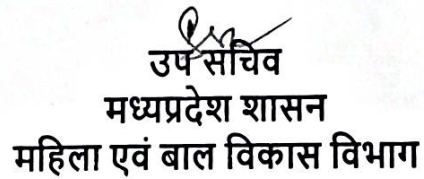 उप सचिव
मध्यप्रदेश शासन
महिला एवं बाल विकास विभाग